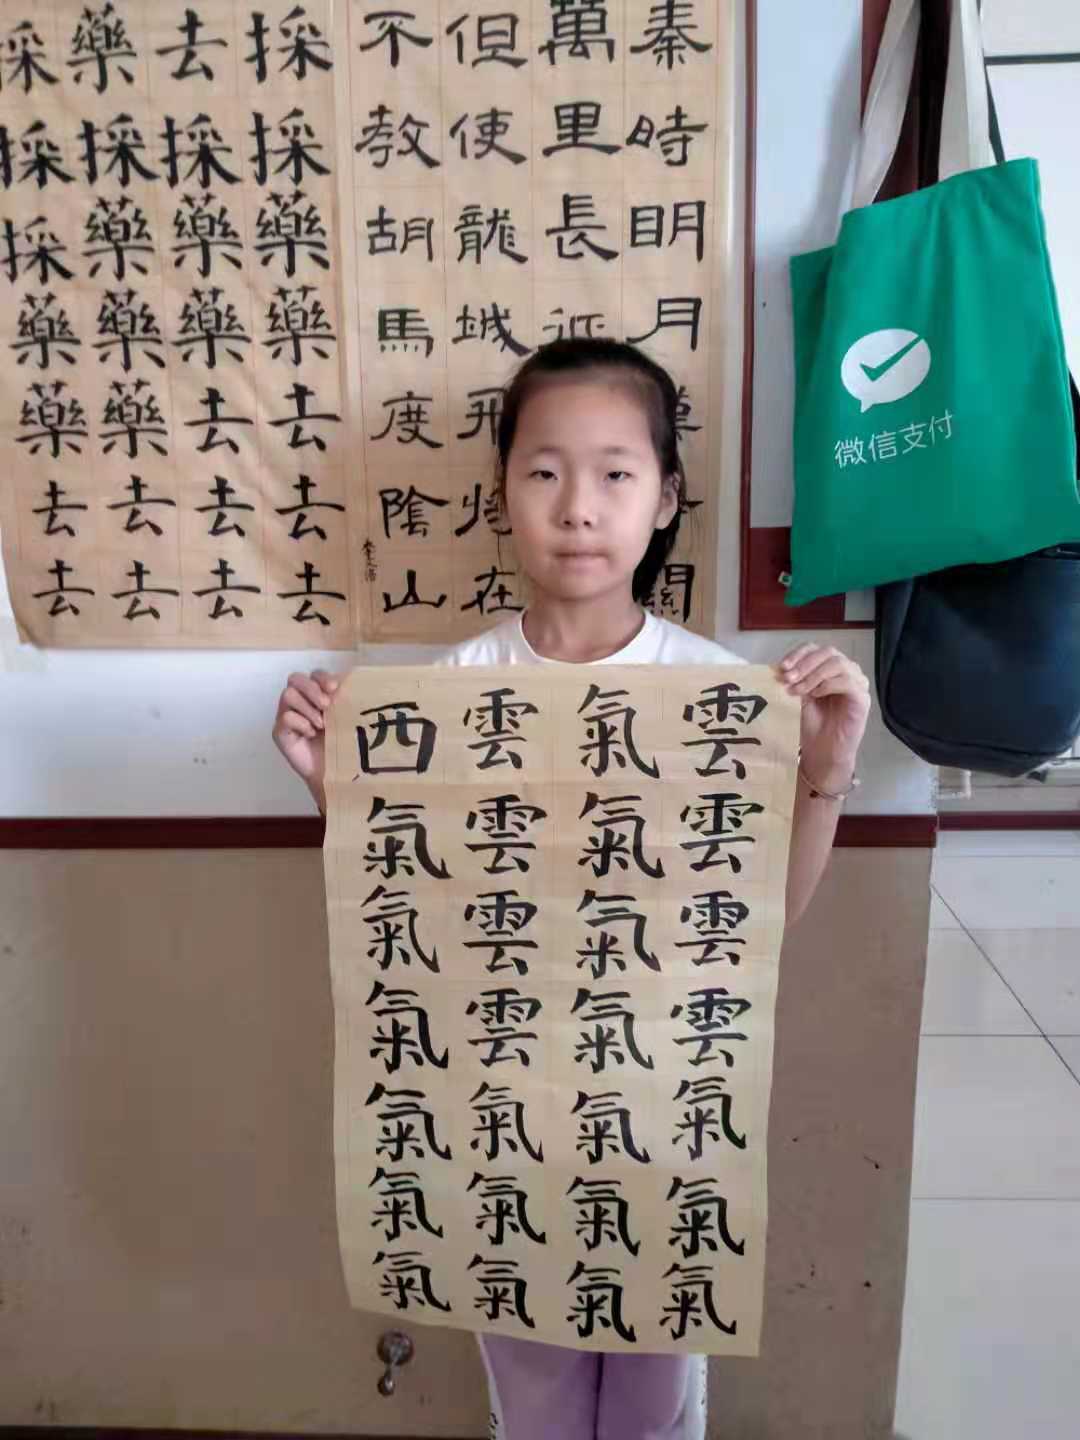 秦時明月漢關
萬里長征
但使龍城飛將在
不教胡馬度陰山
採採藥藥去去去
去採藥藥去去去
藥採藥藥藥去去
採採採藥藥去去
雲雲雲雲氣氣氣
氣氣氣氣氣氣氣
雲雲雲雲氣氣氣
西氣氣氣氣氣氣
微信支付